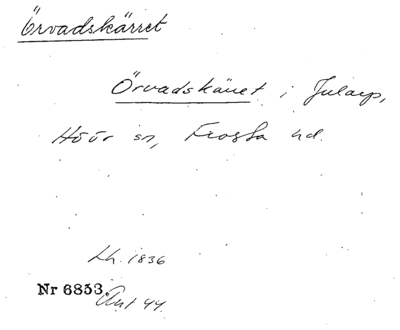 Örvadskärret
Örvadskärret i Jularp,
Höör sn, Frosta hd.
Lh. 1836
Nr 6853.
Ant 44.